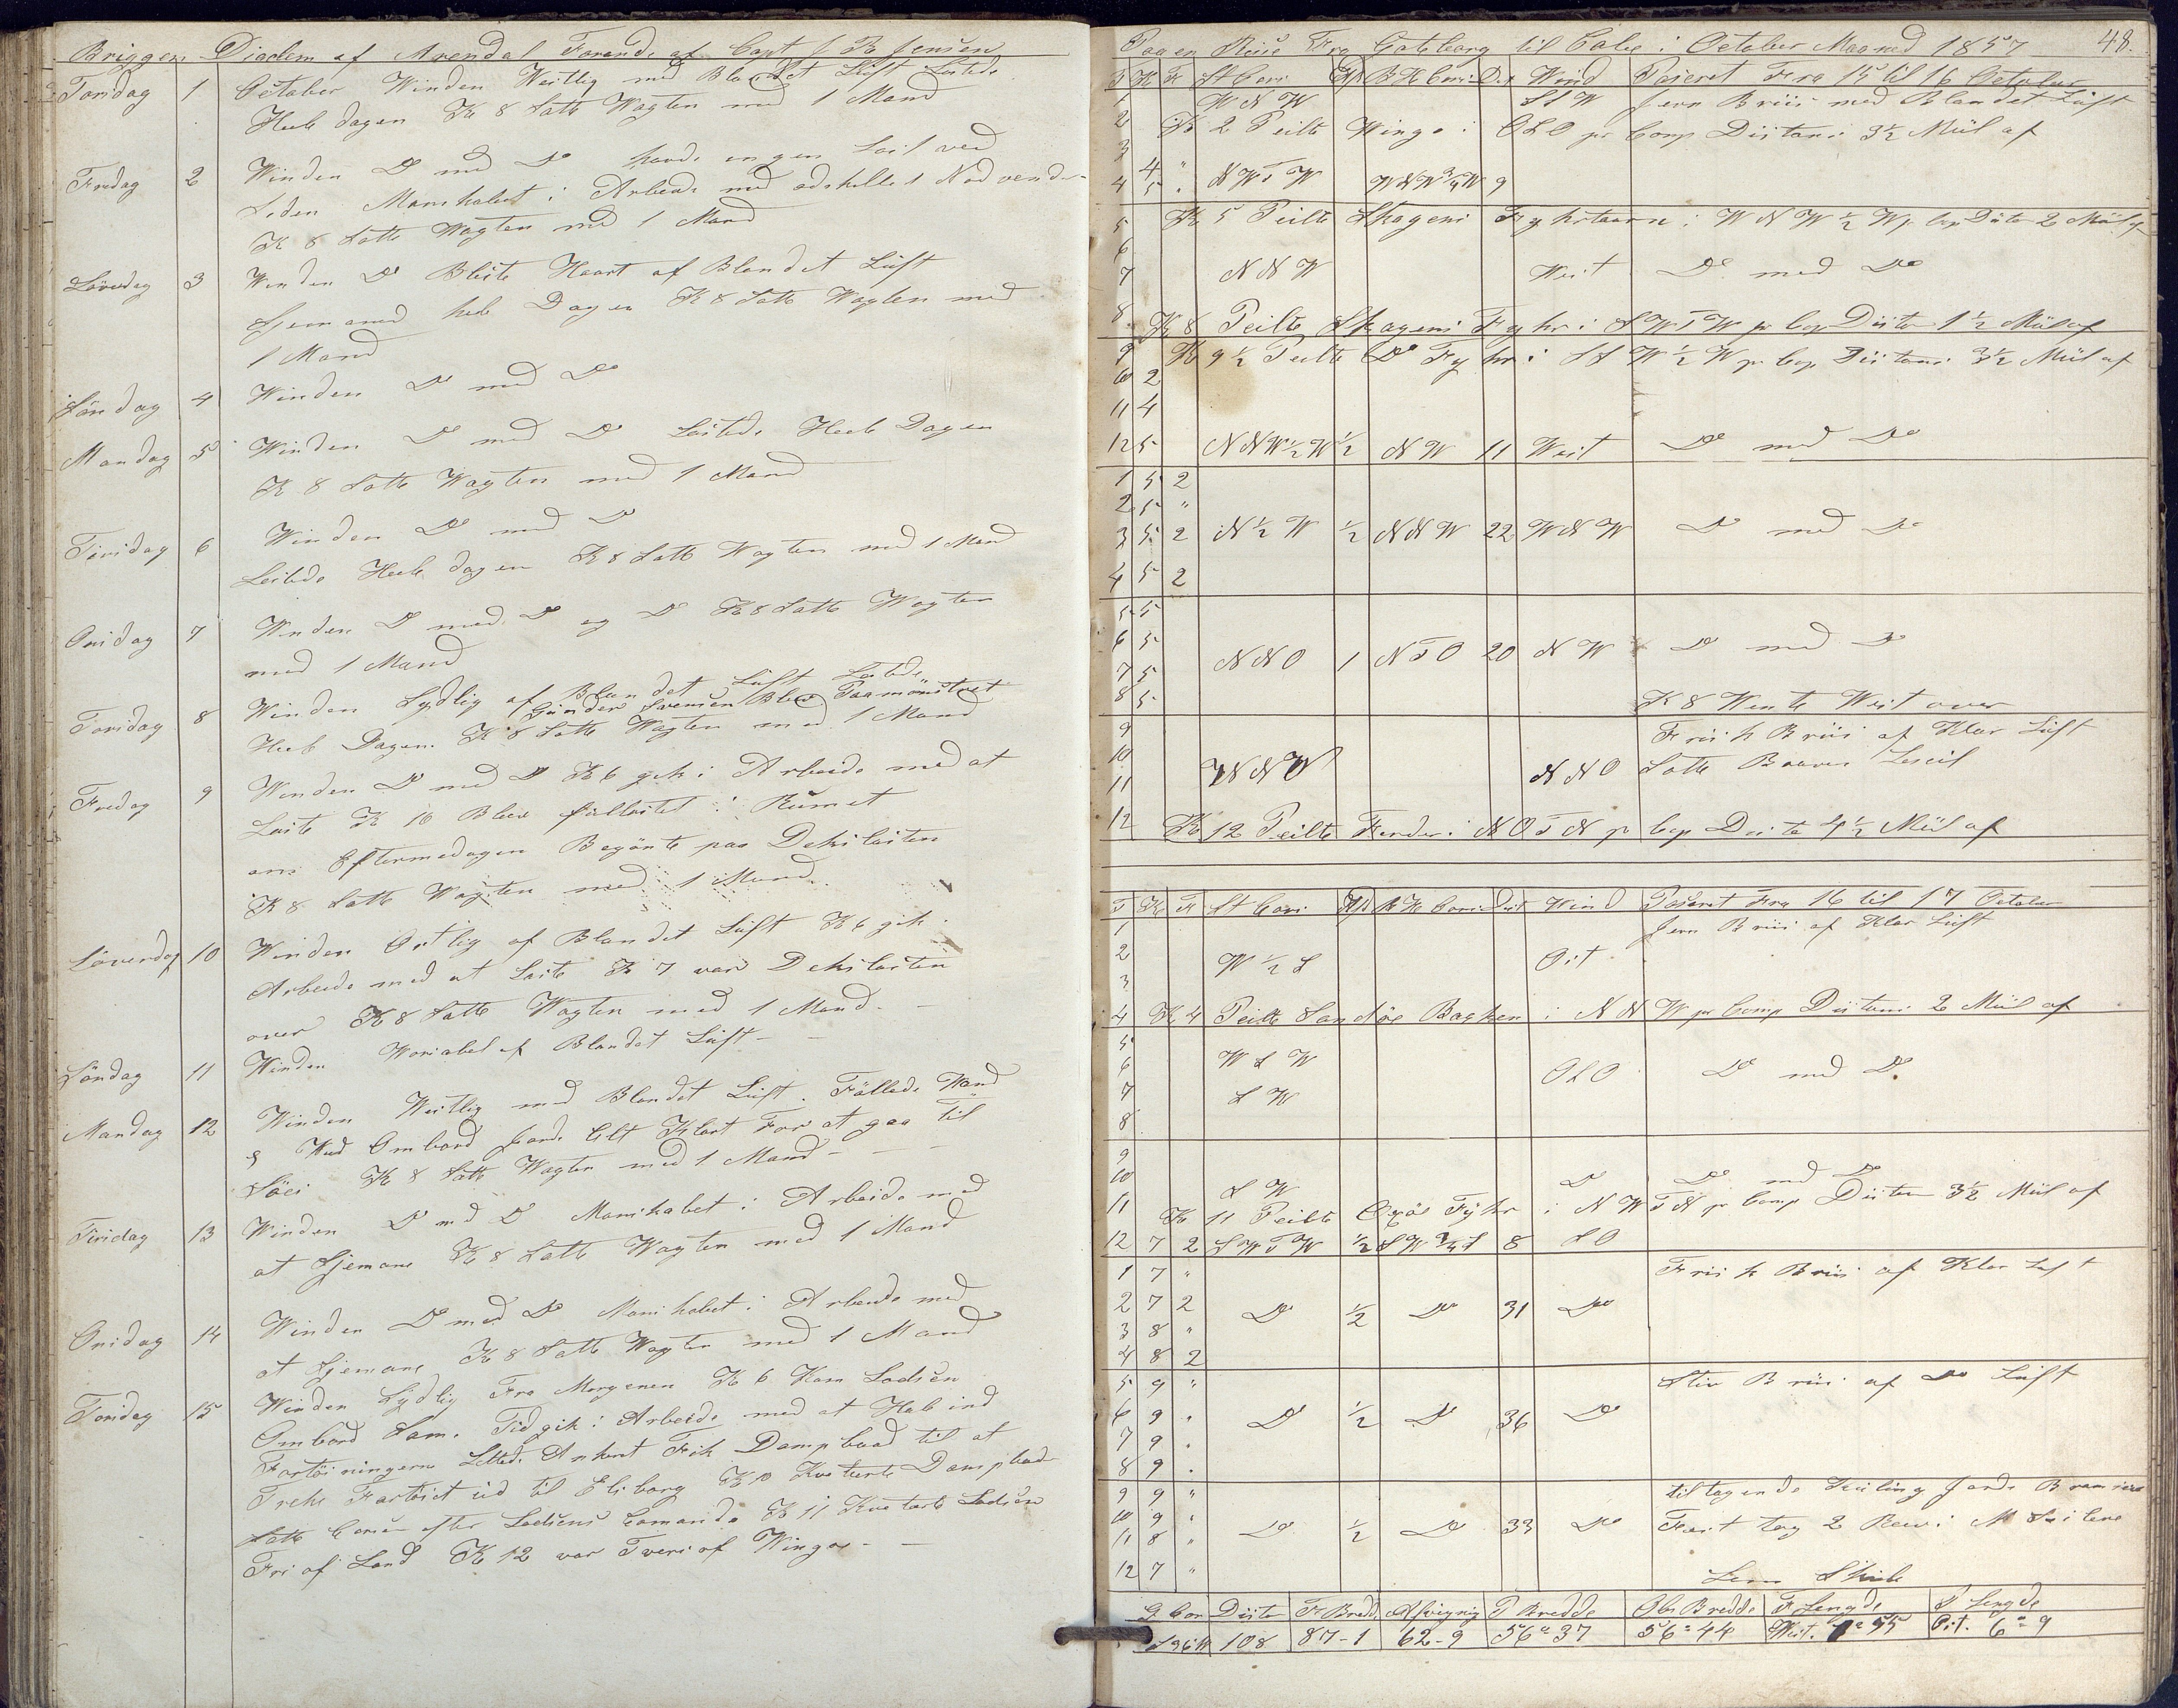 Briggen Diadem af Arendal Førende af Capt J R Jensen
Torsdag 1 October Winden Westlig med Blandet Luft Lastede
Heele dagen Kl 8 Satte Wagten med 1 Mand
Fredag 2 Winden Do med Do havde ingen Last ved
Siden Manskabet i Arbeide med adskilleł Nødvendi-
Kl 8 Satte Wagten med 1 Mand
Løverdag 3 Winden Do Bleste Haart af Blandet Luft
Sjemaned hele Dagen Kl 8 Satte Wagten med
1 Mand
Söndag 4 Winden Do med Do
Mandag 5 Winden Do med Do Lastede Heele Dagen
Kl 8 Satte Wagten med 1 Mand
Tirsdag 6 Winden Do med Do
Lastede Heele dagen Kl 8 Satte Wagten med 1 Mand
Onsdag 7 Winden Do med Do og Do Kl 8 Satte Wagten
med 1 Mand
Torsdag 8 Winden Sydlig af Blandet Luft Lastede
Gunder Svensen Blev Paamönstret
Heele Dagen. Kl 8 Satte Wagten med 1 Mand
Fredag 9 Winden Do med Do Kl 6 gik i Arbeide med at
Laste Kl 10 Blev fuldlastet i Rumet
om Eftermedagen Begönte paa Dekslasten
Kl 8 Satte Wagten med 1 Mand
Löverdag 10 Winden Ostlig af Blandet Luft Kl 6 gik i
Arbeide med at Laste Kl 7 var Dekslasten
over Kl 8 Satte Wagten med 1 Mand -
Söndag 11 Winden Variabel af Blandet Luft -
Mandag 12 Winden Westlig med Blandet Luft. Föllede Wand
& Wed Ombord Jorde Alt Klart For at gaa Til
Söes Kl 8 Satte Wagten med 1 Mand -
Tirsdag 13 Winden Do med Do Manskabet i Arbeide med
at Sjemane Kl 8 Satte Wagten med 1 Mand
Onsdag 14 Winden Do med Do Manskabet i Arbeide med
at Sjemane Kl 8 Satte Wagten med 1 Mand
Torsdag 15 Winden Sydlig Fra Morgenen Kl 6 Kom Lodsen
Ombord Sam. Tid gik i Arbeide med at Hale ind
Fortöiningerne Lettede Ankert Fik Dampbaad til at
Treke Fartöiet ud til Elsborg Kl 10 Kvitterte Dampbad-
Satte Couers efter Lodsens Comando Kl 11 Kvitterte Lodsen
Fri af Land Kl 12 var Tvers af Winga -
Pagen Reise Fra Göteborg til Calee i October Maaned 1857 48.
T K F St Cours Afd B H Cours Dist Wind Paseret Fra 15 til 16 October
1 W N W SSW Jevn Briis med Blandet Luft
2 Kl 2 Peilte Winga i OSO pr Comp Distans 3½ Miil af
3
4 4 "
4 5 . N W T W W N W ¾ W 9
5 Kl 5 Peilte Skagens Fyhrtaarn i W N W ½ W pr Cop Dist 2 Miil af
6
7 N N W West Do med Do
8 Kl 8 Peilte Skagens Fyhr i S W T W pr Cop Dist 1½ Miil af
9 Kl 9½ Peilte Do Fyhr i S S W ½ W pr Cop Distans 3½ Miil af
10 2
11 4
12 5 N N W ½ W ½ N W 11 West Do med Do
1 5 2
2 5 "
3 5 2 N ½ W ½ N N W 22 W N W Do med Do
4 5 2
5 5
6 5 N N O 1 N T O 20 N W Do med Do
7 5
8 5 Kl 8 Wente West over
9 Frisk Briis af Klar Luft
10 W N W N N O Satte Boven Leseil
11
12 Kl 12 Peilte Ferder i N O T N pr Cop Dist 4½ Miil af
T K F St Cours Afd B H Cours Dist Wind Paseret Fra 16 til 17 October
1 Jevn Briis af Klar Luft
2 W ½ S Ost
3
4 Kl 4 Peilte Sandöe Baaken i N N W pr Comp Distans 2 Miil af
5
6 W S W OSO Do med Do
7 S W
8
9
10 S W Do Do med Do
11 Kl 11 Peilte Oxöe Fyhr i N W T N pr Comp Distan 3½ Miil af
12 7 2 S W T W ½ S W ¾ S 8 S O
1 7 " Frisk Briis af Klar Luft
2 7 2 Do ½ Do 31 Do
3 8 "
4 8 2
5 9 " Stiv Briis af Do Luft
6 9 " Do ½ Do 36 Do
7 9 .
8 9 .
9 9 " tiltagende Kuling Jorde Bramseil
10 9 " Do ½ Do 33 Do Fast tog 2 Rev i M Seilene
11 8 "
12 7 " Lens Skib
G Cor Dist F Bred Afvigning P Bredde Obs Bredde F Lengde P Lengde
S 36 W 108 87-1 62-9 56°37 56°44 West. 1°55 Ost. 6°9